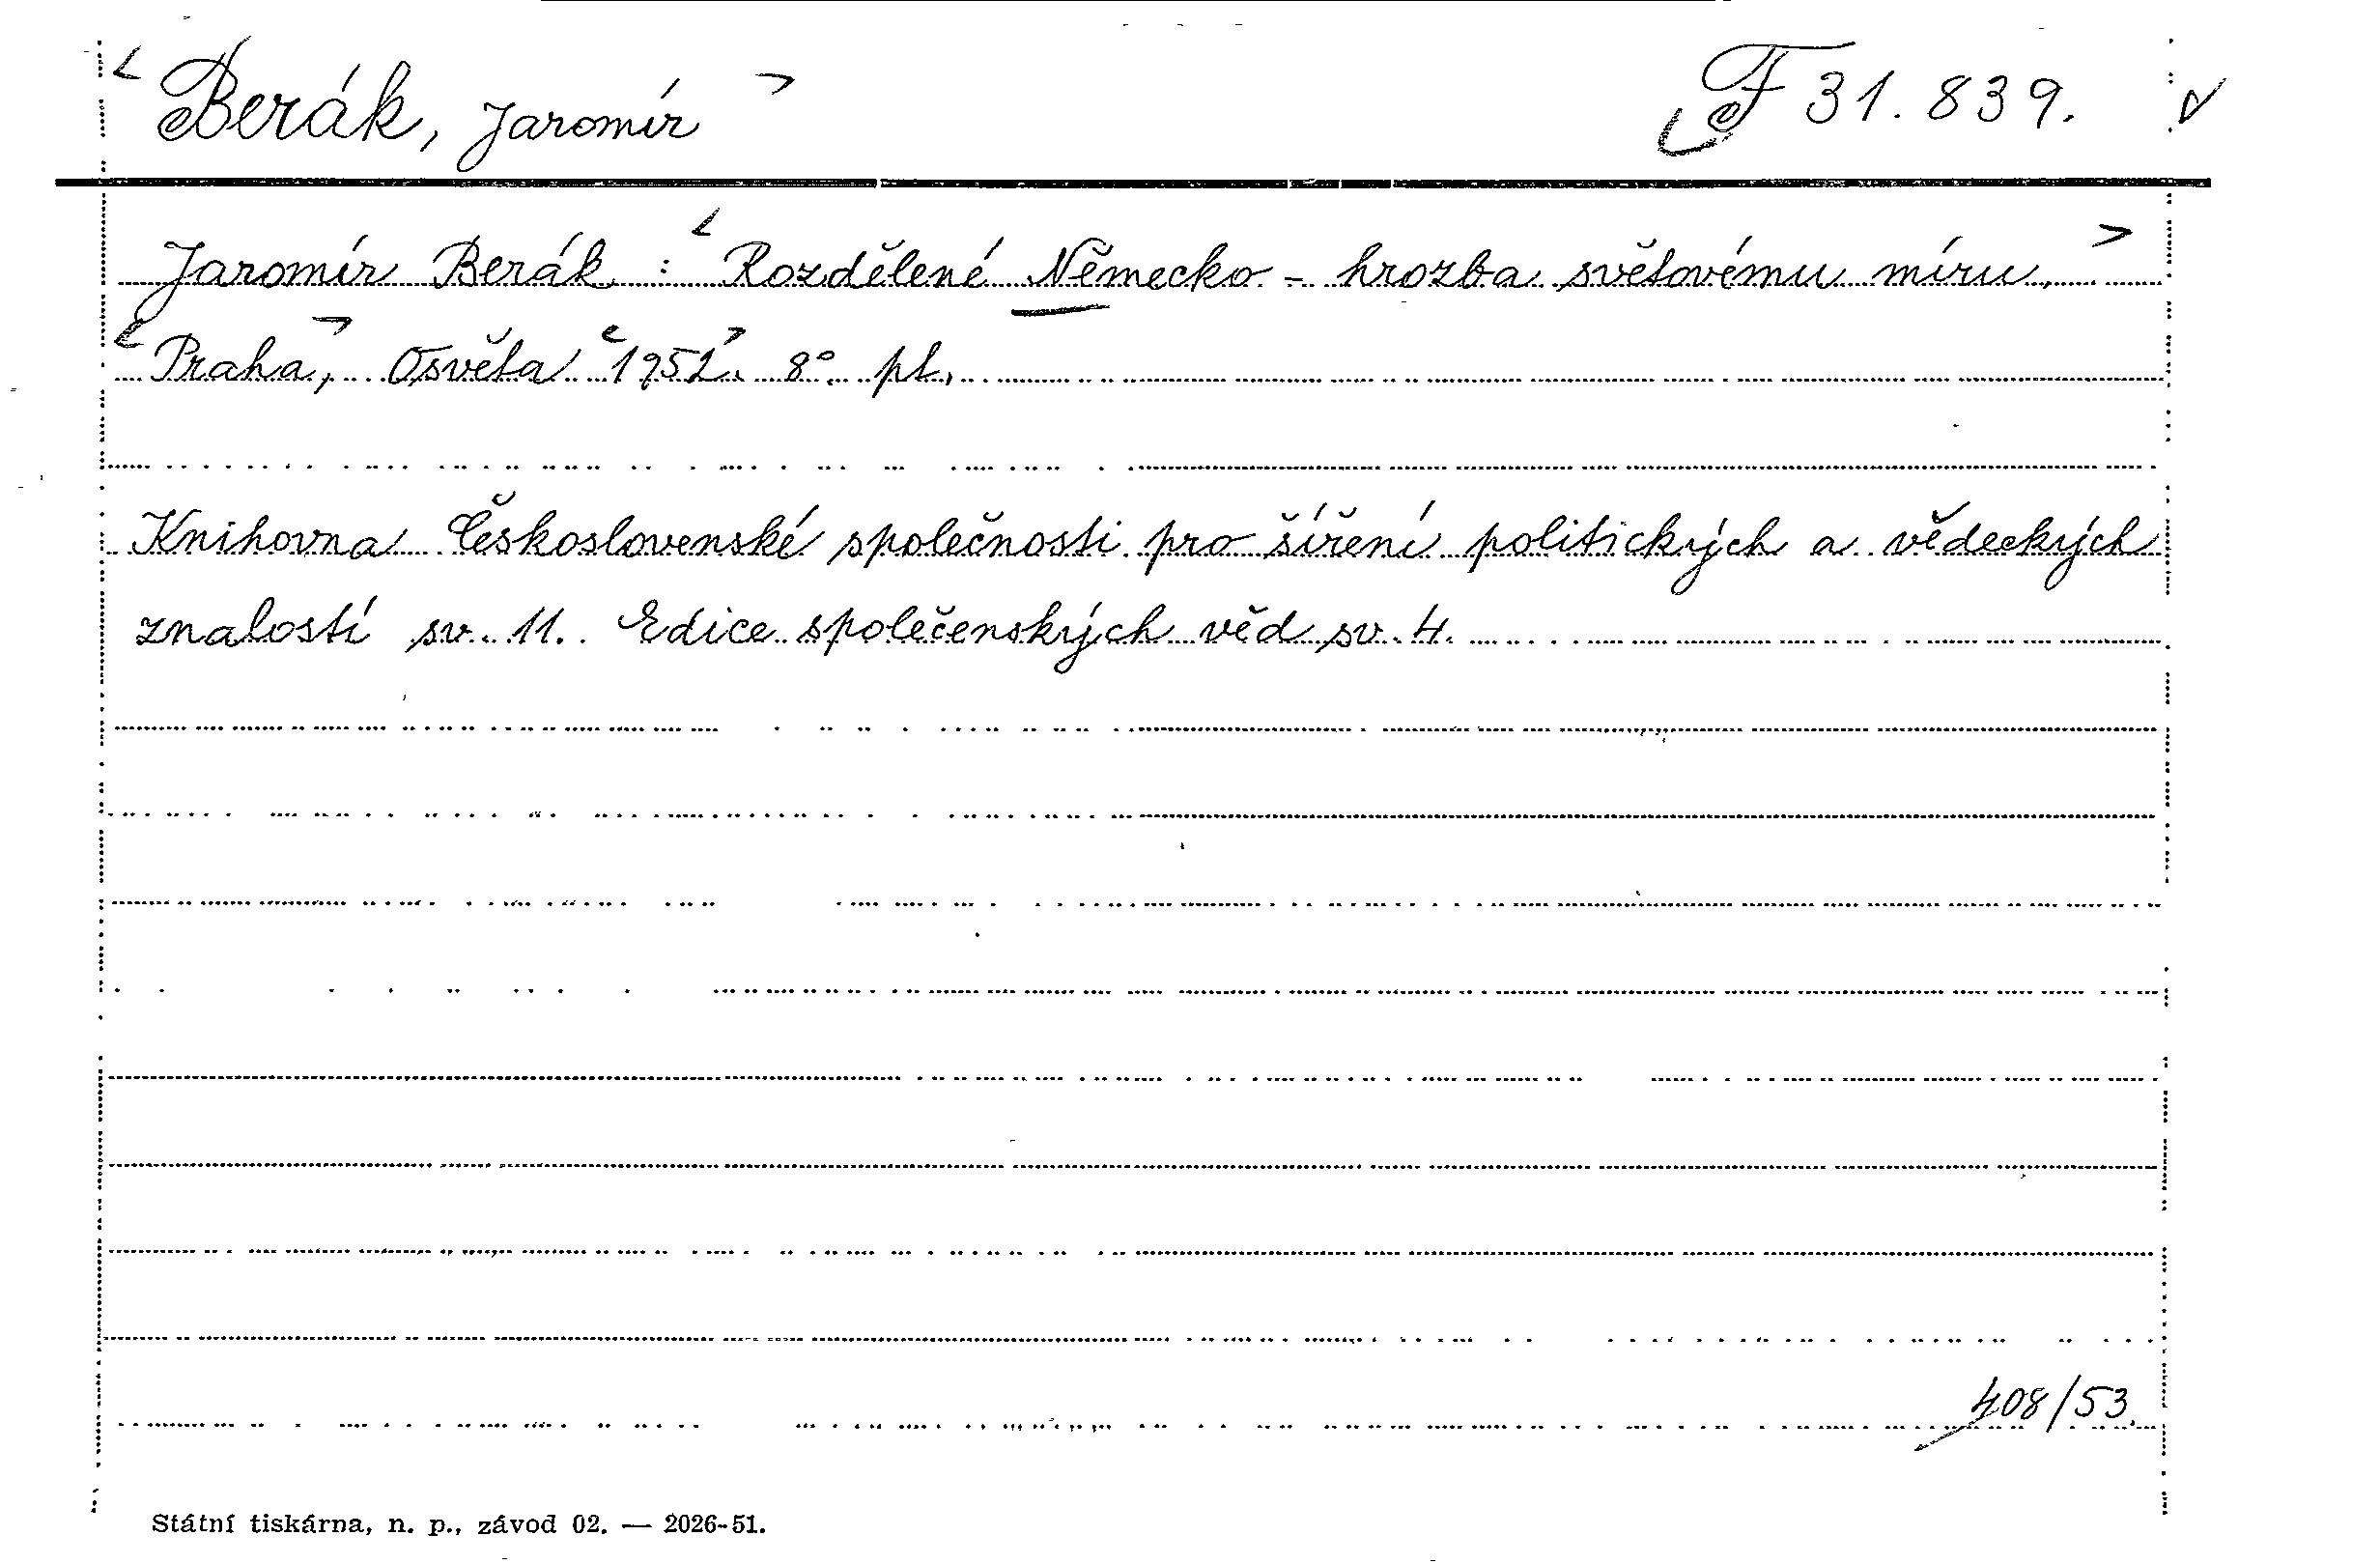 Berák, Jaromír F 31.839.
Jaromír Berák : Rozdělené Německo - hrozba světovému míru.
Praha, Osvěta 1952. 8° pt.
Knihovna Československé společnosti pro šíření politických a vědeckých
znalostí sv. 11. Edice společenských věd sv. 4.
408/53.
Státní tiskárna, n. p., závod 02. — 2026-51.